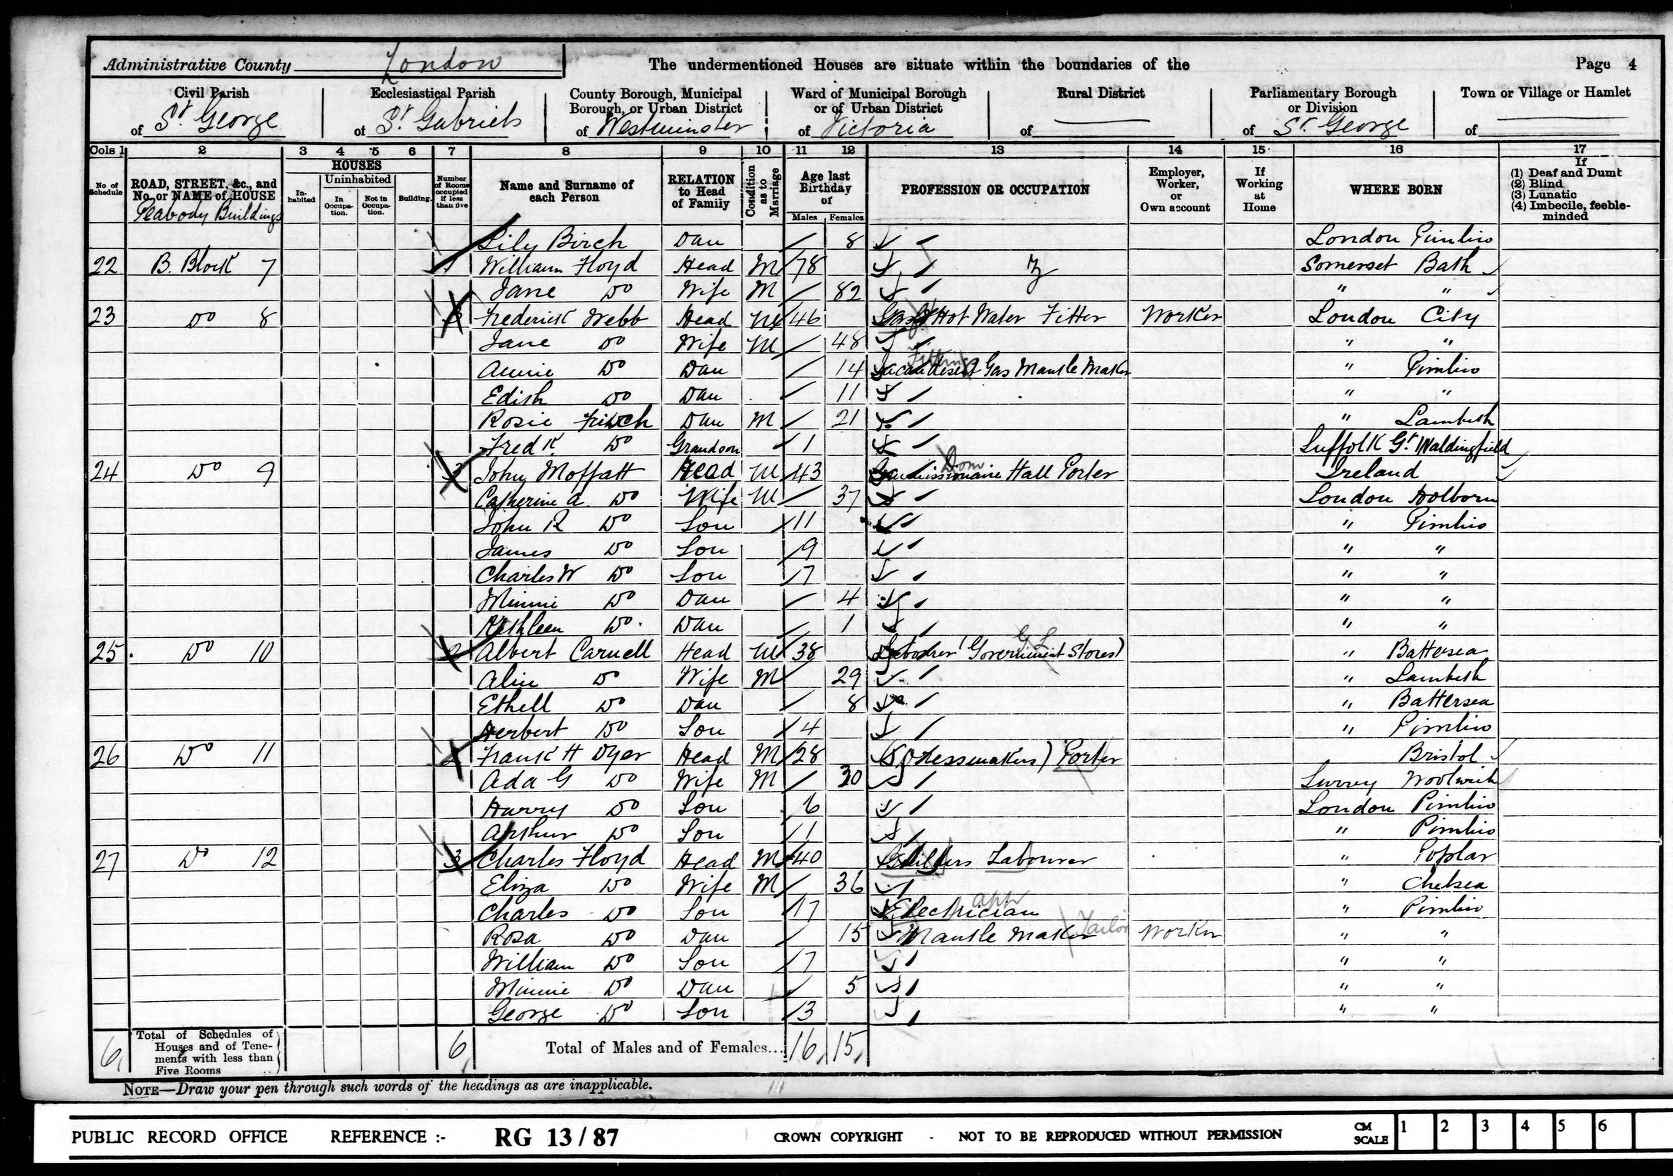 Administrative County London The undermentioned Houses are situate within the boundaries of the Page 4
Civil Parish Ecclesiastical Parish County Borough, Municipal Borough, or Urban District Ward of Municipal Borough or of Urban District Rural District Parliamentary Borough or Division Town or Village or Hamlet
of St George of St Gabriels of Westminster of Victoria of of St George of
Cols 1 2 3 4 5 6 7 8 9 10 11 12 13 14 15 16 17
No. of Schedule ROAD, STREET, &c., and No. or NAME of HOUSE HOUSES Inhabited Uninhabited In Occupation. Not in Occupation. Building. Number of Rooms occupied if less than five Name and Surname of each Person RELATION to Head of Family Condition as to Marriage Age last Birthday of Males Females PROFESSION OR OCCUPATION Employer, Worker, or Own account If Working at Home WHERE BORN If (1) Deaf and Dumb (2) Blind (3) Lunatic (4) Imbecile, feeble-minded
Peabody Buildings
Lily Birch Dau 8 London Pimlico
22 B. Block 7 1 William Floyd Head M 78 Somerset Bath
Jane Do Wife M 82 " "
23 Do 8 3 Frederick Webb Head M 46 Gas & Hot Water Fitter Worker London City
Jane Do Wife M 48 " "
Annie Do Dau 14 Gas Mantle Maker " Pimlico
Edith Do Dau 11 " "
Rosie Dau M 21 " Lambeth
Fredk Do Grandson 1 Suffolk Gt Waldingfield
24 Do 9 3 John Moffatt Head M 43 Commissionaire Hall Porter Dom Ireland
Catherine A. Do Wife M 37 London Holborn
John R Do Son 11 " Pimlico
James Do Son 9 " "
Charles W Do Son 7 " "
Minnie Do Dau 4 " "
Kathleen Do Dau 1 " "
25 Do 10 2 Albert Carnell Head M 38 Labourer (Government Stores) " Battersea
Alice Do Wife M 29 " Lambeth
Ethell Do Dau 8 " Battersea
Herbert Do Son 4 " Pimlico
26 Do 11 2 Frank H Dyer Head M 28 (Dressmakers) Porter Bristol
Ada G Do Wife M 30 Surrey Woolwich
Harry Do Son 6 London Pimlico
Arthur Do Son 1 " Pimlico
27 Do 12 3 Charles Floyd Head M 40 Builders Labourer " Poplar
Eliza Do Wife M 36 " Chelsea
Charles Do Son 17 Electrician app " Pimlico
Rosa Do Dau 15 Mantle Maker Tailor Worker " "
William Do Son 7 " "
Minnie Do Dau 5 " "
George Do Son 3 " "
6 Total of Schedules of Houses and of Tenements with less than Five Rooms 6 Total of Males and of Females... 16 15
NOTE—Draw your pen through such words of the headings as are inapplicable.
PUBLIC RECORD OFFICE REFERENCE :- RG 13/87 CROWN COPYRIGHT - NOT TO BE REPRODUCED WITHOUT PERMISSION CM SCALE 1 2 3 4 5 6